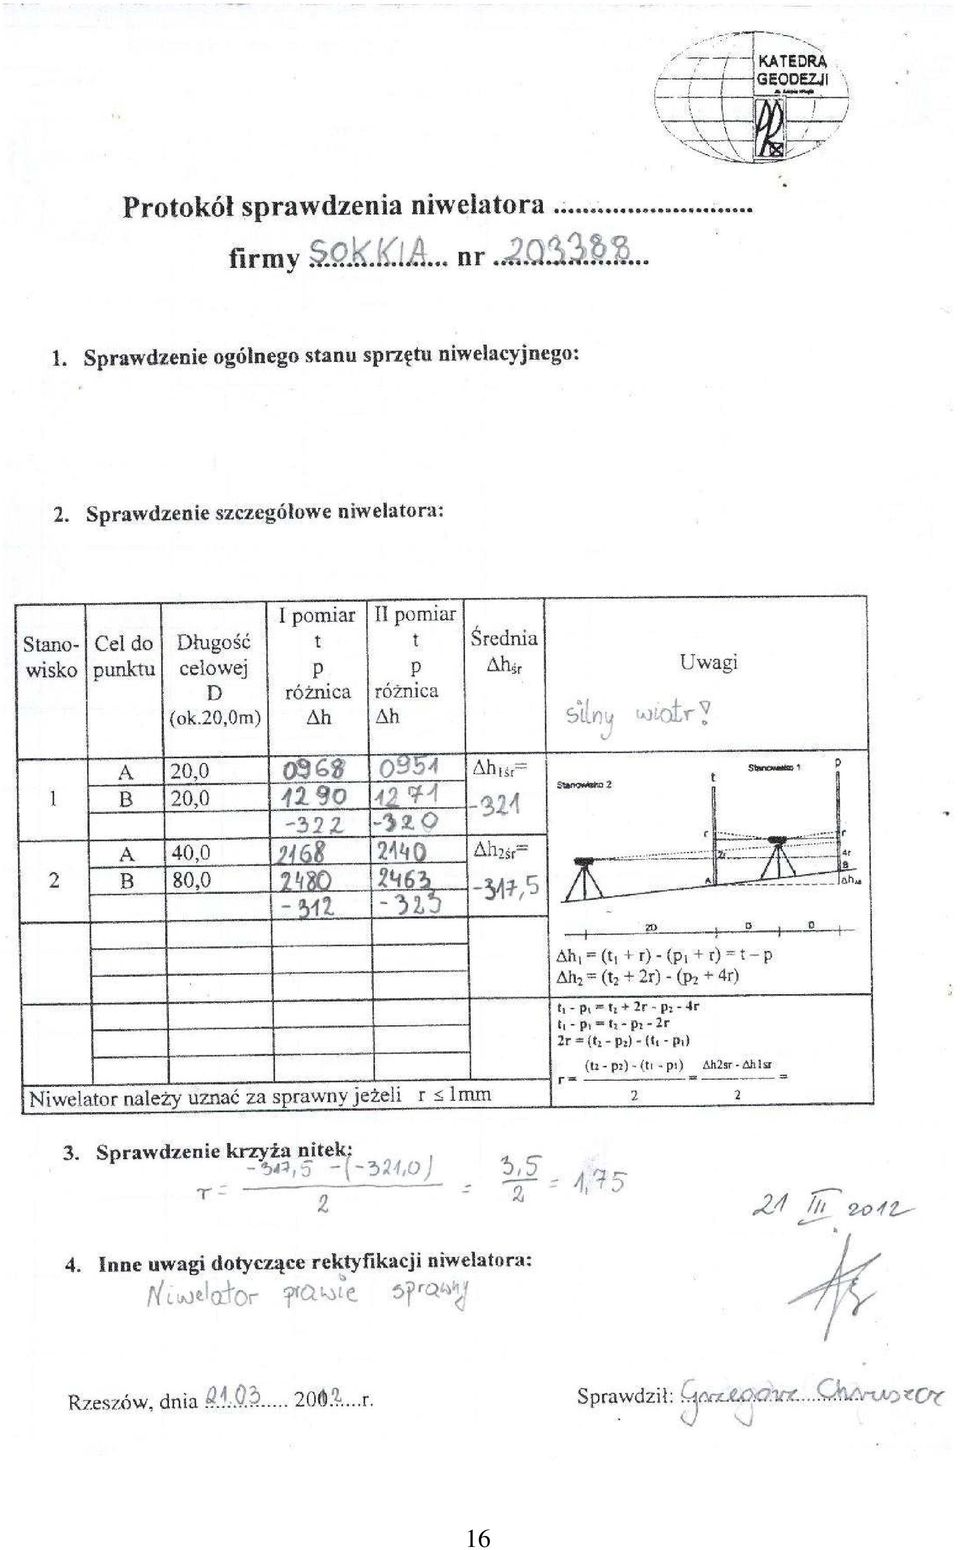 KATEDRA
GEODEZJI
Protokół sprawdzenia niwelatora ..............................
firmy SOKKIA... nr ..203388...
1. Sprawdzenie ogólnego stanu sprzętu niwelacyjnego:
2. Sprawdzenie szczegółowe niwelatora:
Stano-wisko | Cel do punktu | Długość celowej D (ok.20,0m) | I pomiar t p różnica Δh | II pomiar t p różnica Δh | Średnia Δhśr | Uwagi
silny wiatr!
1 | A | 20,0 | 0968 | 0951 | Δh1śr=
B | 20,0 | 1290 | 1271 | -321
-322 | -320
2 | A | 40,0 | 2168 | 2140 | Δh2śr=
B | 80,0 | 2480 | 2463 | -317,5
-312 | -323
Stanowisko 2 t Stanowisko 1 p
r r
2r 4r
A B
ΔhAB
2D D D
Δh1 = (t1 + r) - (p1 + r) = t – p
Δh2 = (t2 + 2r) - (p2 + 4r)
t1 - p1 = t2 + 2r - p2 - 4r
t1 - p1 = t2 - p2 - 2r
2r = (t2 - p2) - (t1 - p1)
(t2 - p2) - (t1 - p1) Δh2sr - Δh1sr
r = ——— = ——— =
2 2
Niwelator należy uznać za sprawny jeżeli r ≤ 1mm
3. Sprawdzenie krzyża nitek:
r = -317,5 - (-321,0) / 2 = 3,5 / 2 = 1,75
21 III 2012
4. Inne uwagi dotyczące rektyfikacji niwelatora:
Niwelator prawie sprawny
Rzeszów, dnia 21.03..... 2002....r.
Sprawdził: Grzegorz
16